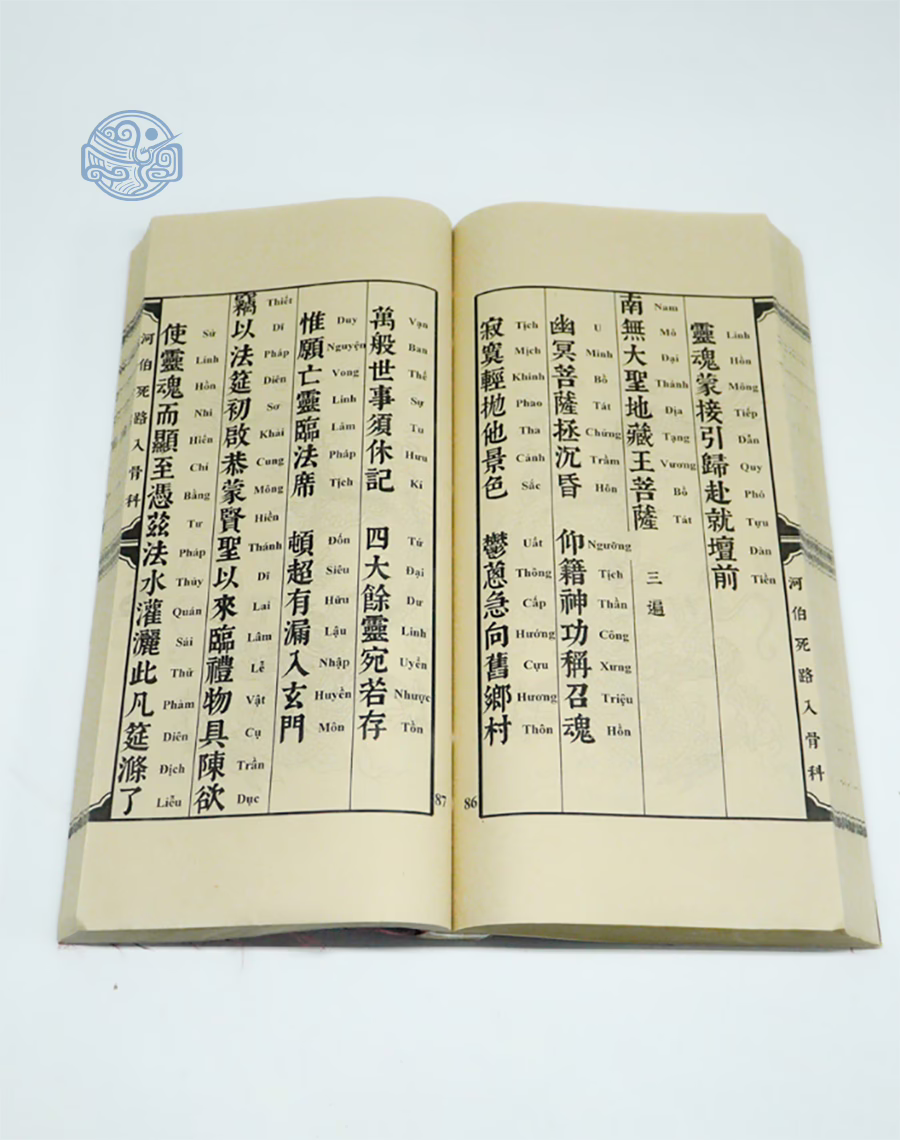 靈魂蒙接引歸赴就壇前
Linh Hồn Mông Tiếp Dẫn Quy Phó Tựu Đàn Tiền
南無大聖地藏王菩薩 三遍
Nam Mô Đại Thánh Địa Tạng Vương Bồ Tát
幽冥菩薩拯沉昏 仰籍神功稱召魂
U Minh Bồ Tát Chứng Trầm Hôn Ngưỡng Tịch Thần Công Xưng Triệu Hồn
寂寞輕拋他景色 鬱蔥急向舊鄉村
Tịch Mịch Khinh Phao Tha Cảnh Sắc Uất Thông Cấp Hướng Cựu Hương Thôn
河伯死路入骨科
86
萬般世事須休記 四大餘靈宛若存
Vạn Ban Thế Sự Tu Hưu Kí Tứ Đại Dư Linh Uyển Nhược Tồn
惟願亡靈臨法席 頓超有漏入玄門
Duy Nguyện Vong Linh Lâm Pháp Tịch Đốn Siêu Hữu Lậu Nhập Huyền Môn
竊以法筵初啟恭蒙賢聖以來臨禮物具陳欲
Thiết Dĩ Pháp Diên Sơ Khải Cung Mông Hiền Thánh Dĩ Lai Lâm Lễ Vật Cụ Trần Dục
使靈魂而顯至憑茲法水灌灑此凡筵滌了
Sử Linh Hồn Nhi Hiển Chí Bằng Tư Pháp Thủy Quán Sái Thử Phàm Diên Địch Liễu
河伯死路入骨科
87